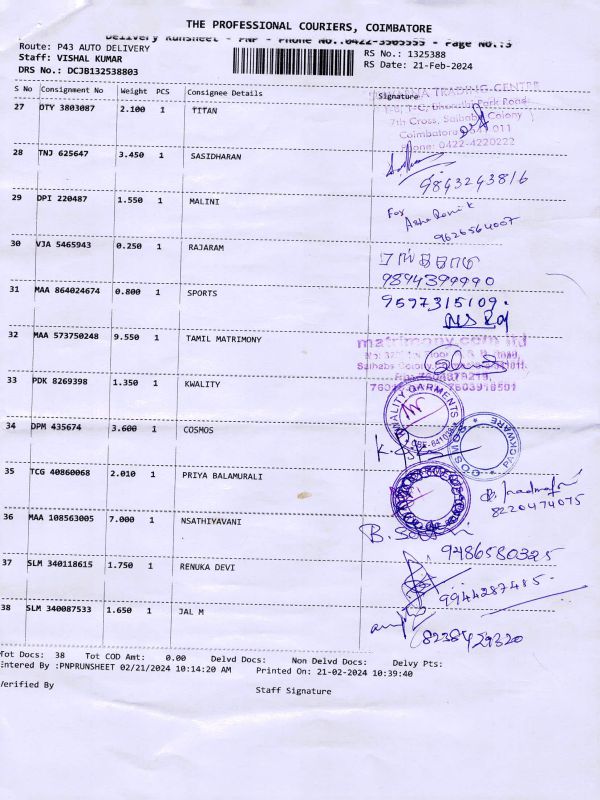 THE PROFESSIONAL COURIERS, COIMBATORE
Delivery Runsheet - PNP - Phone No.:0422-3505555 - Page No.:3
Route: P43 AUTO DELIVERY
RS No.: 1325388
Staff: VISHAL KUMAR
RS Date: 21-Feb-2024
DRS No.: DCJB132538803
S No Consignment No Weight PCS Consignee Details Signature
27 OTY 3803087 2.100 1 TITAN
TRADING CENTRE
Park Road
7th Cross, Saibaba Colony
Coimbatore
Phone: 0422-4220222
28 TNJ 625647 3.450 1 SASIDHARAN
9843243816
29 DPI 220487 1.550 1 MALINI
For
9626564007
30 VJA 5465943 0.250 1 RAJARAM
9894399990
31 MAA 864024674 0.800 1 SPORTS
9597315109.
32 MAA 573750248 9.550 1 TAMIL MATRIMONY
matrimony.com ltd
Saibaba Colony
33 PDK 8269398 1.350 1 KWALITY
KWALITY GARMENTS
34 DPM 435674 3.600 1 COSMOS
COSMOS PACKWARE
35 TCG 40860068 2.010 1 PRIYA BALAMURALI
8220474075
36 MAA 108563005 7.000 1 NSATHIYAVANI
9486580325
37 SLM 340118615 1.750 1 RENUKA DEVI
9944287485.
38 SLM 340087533 1.650 1 JAL M
Tot Docs: 38 Tot COD Amt: 0.00 Delvd Docs: Non Delvd Docs: Delvy Pts:
Entered By :PNPRUNSHEET 02/21/2024 10:14:20 AM Printed On: 21-02-2024 10:39:40
Verified By
Staff Signature